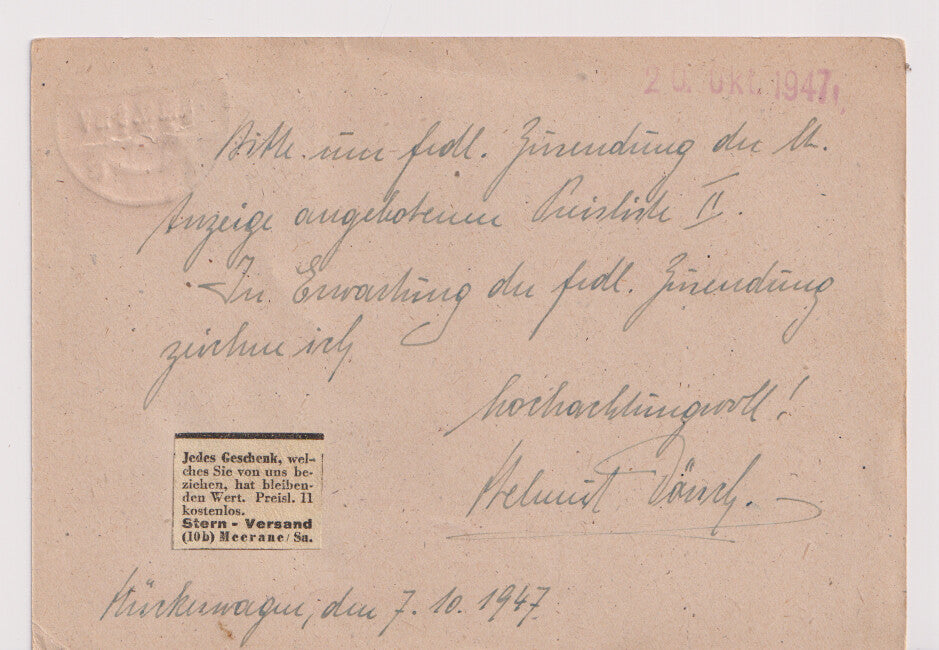 20. Okt. 1947
Bitte um frdl. Zusendung der lt.
Anzeige angebotenen Preisliste II.
In Erwartung der frdl. Zusendung
zeichne ich
hochachtungsvoll!
Helmut
Jedes Geschenk, wel-
ches Sie von uns be-
ziehen, hat bleiben-
den Wert. Preisl. 11
kostenlos.
Stern - Versand
(10b) Meerane/Sa.
Hückeswagen, den 7. 10. 1947.